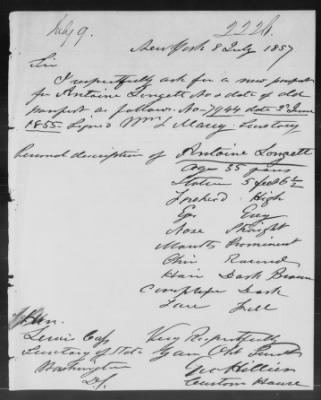 July 9.
2226.
New York 8 July 1857
Sir
I respectfully ask for a new passport
for Antoine Longett No & date of old
passport as follows. No 7944 date 8 June
1855. Signed Wm L Marcy Secretary
Personal description of Antoine Longett
Age 35 years
Stature 5 feet 6 1/2
Forehead High
Eyes Grey
Nose Straight
Mouth Prominent
Chin Round
Hair Dark Brown
Complexion Dark
Face Full
Hon.
Lewis Cass
Very Respectfully
Secretary of State
Your Obt
Washington
Geo Hillier
Custom House